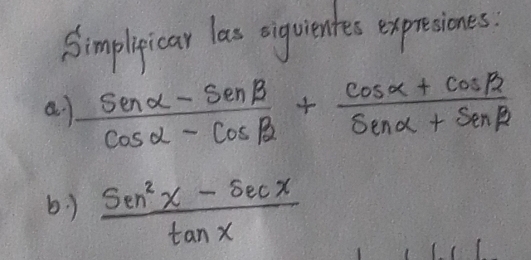 Simplificar las siguientes expresiones:
a.) (Senα - Senβ)/(Cosα - Cosβ) + (Cosα + Cosβ)/(Senα + Senβ)
b.) (Sen²x - Secx)/(tanx)